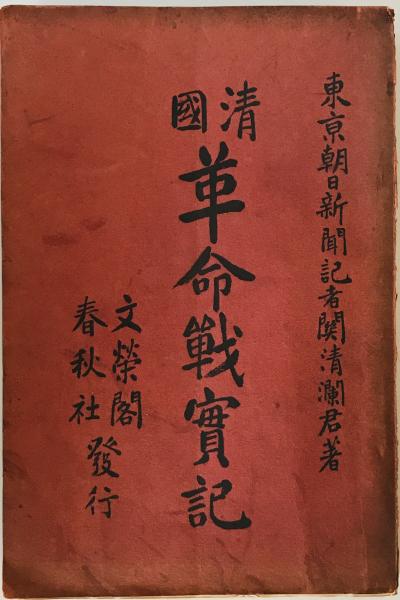 東京朝日新聞記者関清瀾君著
清國
革命戰實記
文榮閣
春秋社
發行